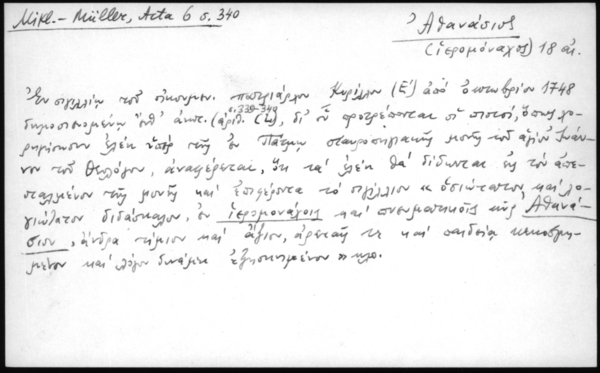 Mikl.- Müller, Acta 6 σ. 340
Ἀθανάσιος
(ἱερομόναχος) 18 αἰ.
Ἐν σιγιλλίῳ τοῦ οἰκουμεν. πατριάρχου Κυρίλλου (Ε΄) ἀπό ὀκτωβρίου 1748
σ. 339-340
δημοσιευομένῳ ἐνθ᾽ ἀνωτ. (ἀριθ. ), δι᾽ οὗ προτρέπονται οἱ πιστοί, ὅπως χο-
ρηγήσουν ἐλέη ὑπέρ τῆς ἐν Πάτμῳ σταυροπηγιακῆς μονῆς τοῦ ἁγίου Ἰωάν-
νου τοῦ Θεολόγου, ἀναφέρεται, ὅτι τά ἐλέη θά δίδωνται εἰς τόν ἀπε-
σταλμένον τῆς μονῆς καί ἐπιφέροντα τό σιγίλλιον « ὁσιώτατον καί λο-
γιώτατον διδάσκαλον, ἐν ἱερομονάχοις καί πνευματικοῖς κύρ Ἀθανά-
σιον, ἄνδρα τίμιον καί ἄξιον, ἀρετῇ τε καί παιδείᾳ κεκοσμη-
μένον καί λόγου δυνάμει ἐξησκημένον » κλπ.